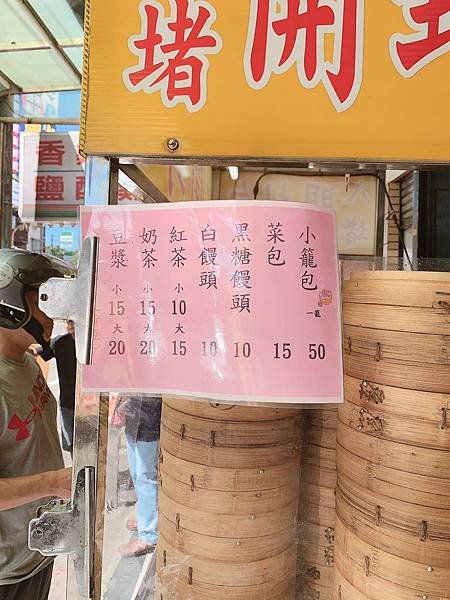 堵開
香
鹽酥
小籠包 一籠 50
菜包 15
黑糖饅頭 10
白饅頭 10
紅茶 小 10 大 15
奶茶 小 15 大 20
豆漿 小 15 大 20